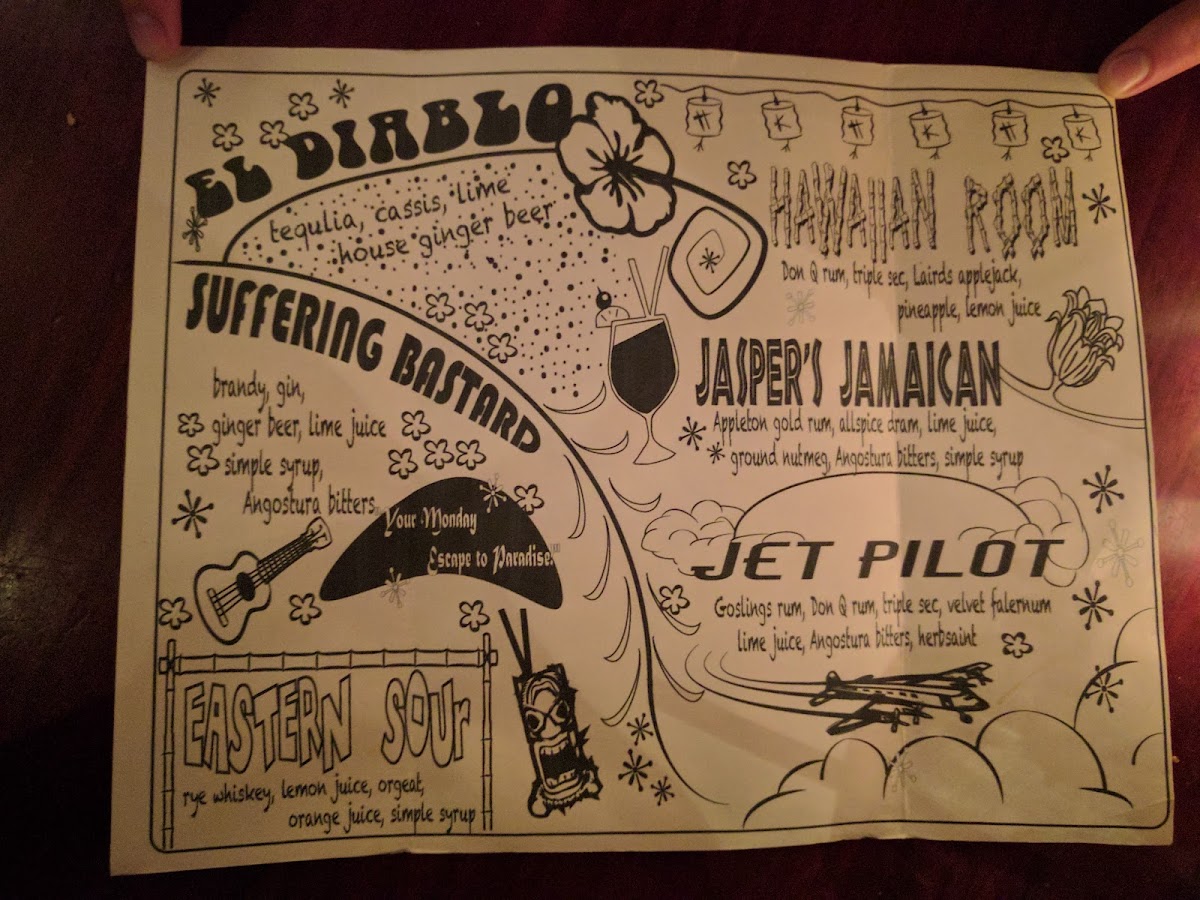 EL DIABLO
tequlia, cassis, lime
house ginger beer
SUFFERING BASTARD
brandy, gin,
ginger beer, lime juice
simple syrup,
Angostura bitters
Your Monday
Escape to Paradise!
EASTERN SOUr
rye whiskey, lemon juice, orgeat,
orange juice, simple syrup
T K T K T K
HAWAIIAN ROOM
Don Q rum, triple sec, Lairds applejack,
pineapple, lemon juice
JASPER'S JAMAICAN
Appleton gold rum, allspice dram, lime juice,
ground nutmeg, Angostura bitters, simple syrup
JET PILOT
Goslings rum, Don Q rum, triple sec, velvet falernum
lime juice, Angostura bitters, herbsaint